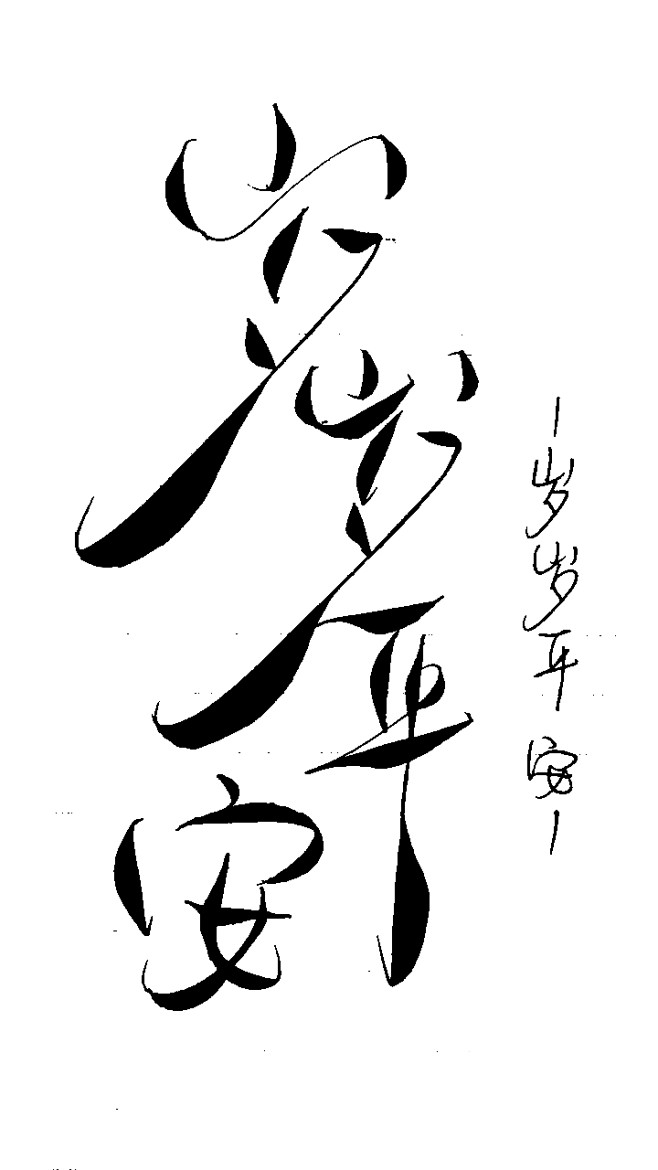 岁岁平安
—岁岁平安—